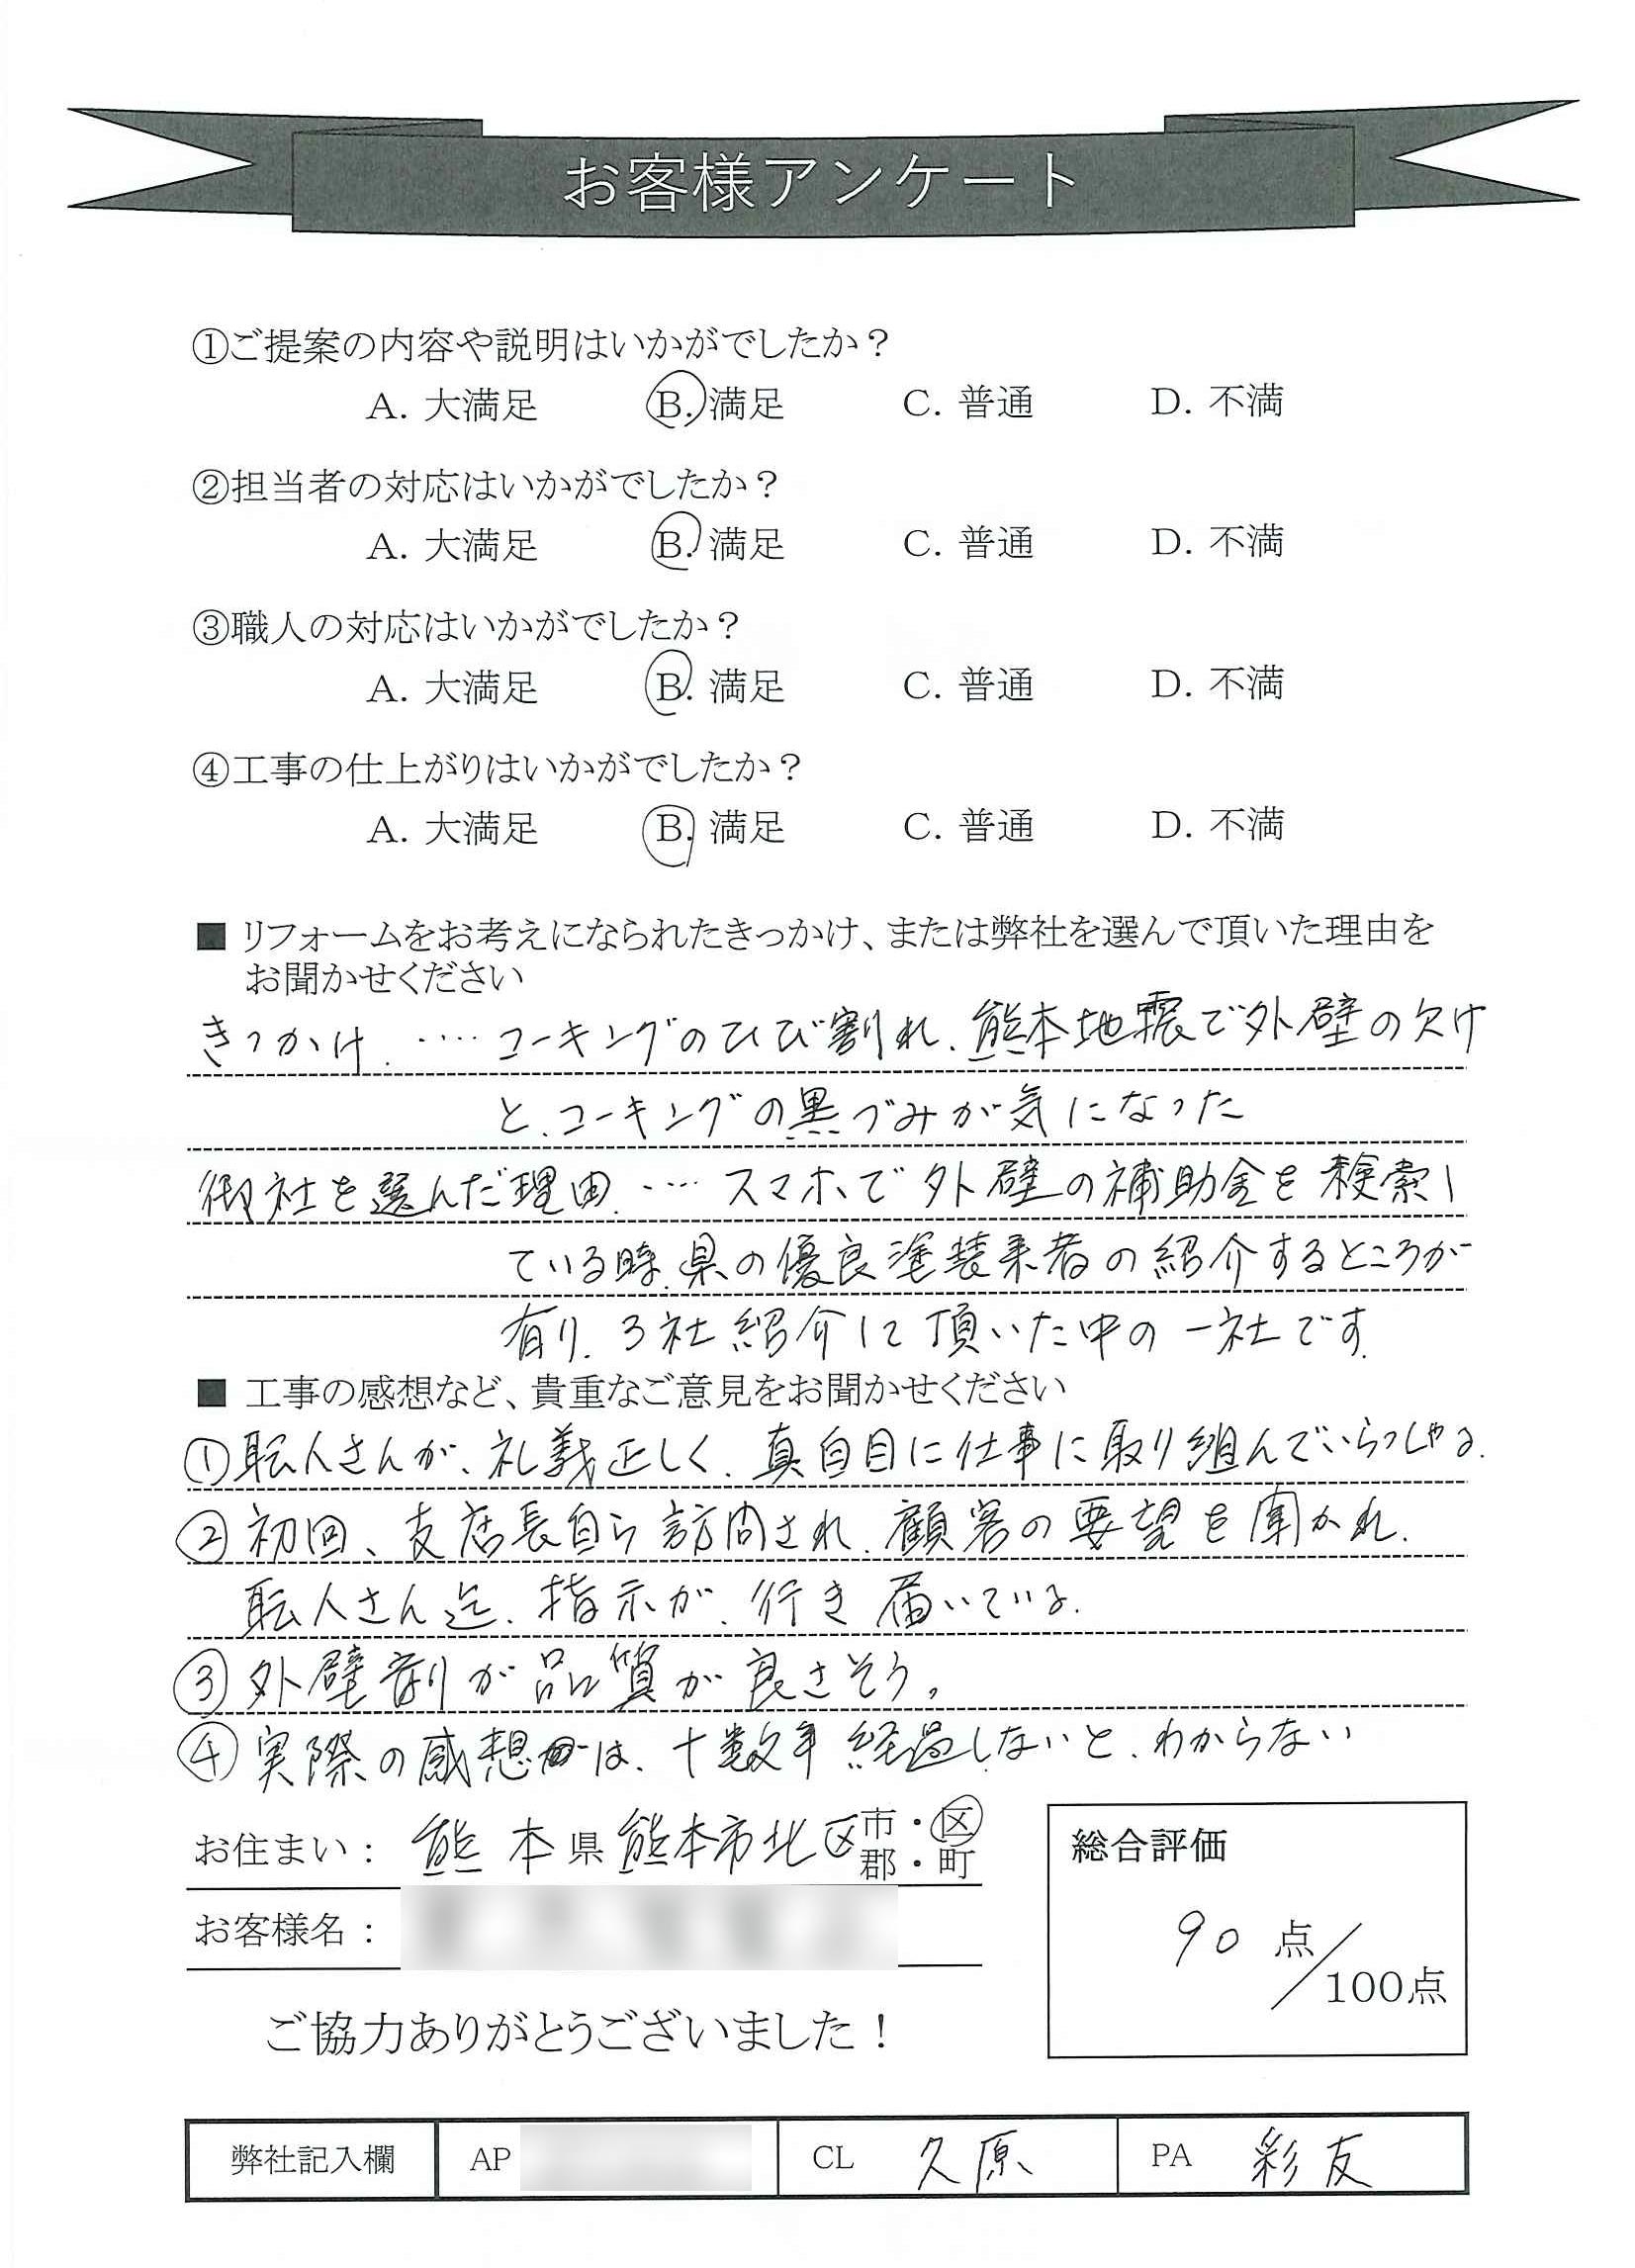 お客様アンケート
①ご提案の内容や説明はいかがでしたか？
A. 大満足 B. 満足 C. 普通 D. 不満
②担当者の対応はいかがでしたか？
A. 大満足 B. 満足 C. 普通 D. 不満
③職人の対応はいかがでしたか？
A. 大満足 B. 満足 C. 普通 D. 不満
④工事の仕上がりはいかがでしたか？
A. 大満足 B. 満足 C. 普通 D. 不満
■ リフォームをお考えになられたきっかけ、または弊社を選んで頂いた理由を
お聞かせください
きっかけ.‥‥コーキングのひび割れ、熊本地震で外壁の欠け
と、コーキングの黒づみが気になった
御社を選んだ理由.‥‥スマホで外壁の補助金を検索し
ている時、県の優良塗装業者の紹介するところが
有り、3社紹介して頂いた中の一社です.
■ 工事の感想など、貴重なご意見をお聞かせください
①職人さんが、礼義正しく、真自目に仕事に取り組んでいらっしゃる.
②初回、支店長自ら訪問され、顧客の要望を聞かれ、
職人さん迄、指示が、行き届いている.
③外壁が品質が良さそう。
④実際の感想は、十数年経過しないと、わからない
お住まい： 熊本県熊本市北区 市・区
郡・町
お客様名：
総合評価
90 点／100点
ご協力ありがとうございました！
弊社記入欄 AP CL 久原 PA 彩友